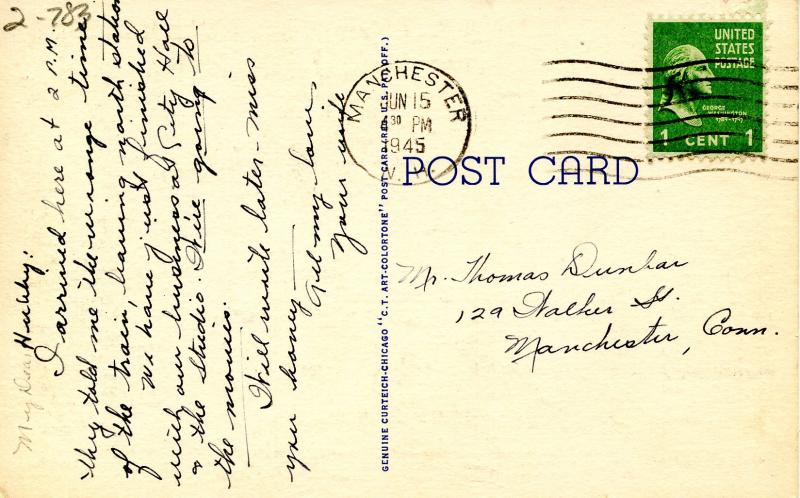 2-783
My Dear Hubby:
I arrived here at 2 P.M.
they told me the wrong time
of the train, leaving north station
We have just finished
with our business at City Hall
& the Studio. We're going to
the movies.
Will write later - miss
you honey -
All my love,
Your wife
GENUINE CURTEICH-CHICAGO "C.T. ART-COLORTONE" POST CARD (REG. U.S. PAT. OFF.)
MANCHESTER
JUN 15
30 PM
1945
POST CARD
UNITED
STATES
POSTAGE
GEORGE
WASHINGTON
1789-1797
1 CENT 1
Mr. Thomas Dunbar
129 Walker St.
Manchester, Conn.